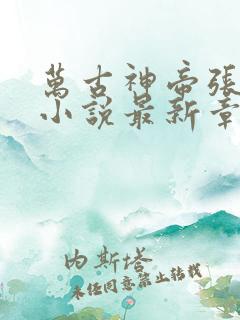 萬古神帝張
小說最新章
内斯塔
未经同意禁止转载